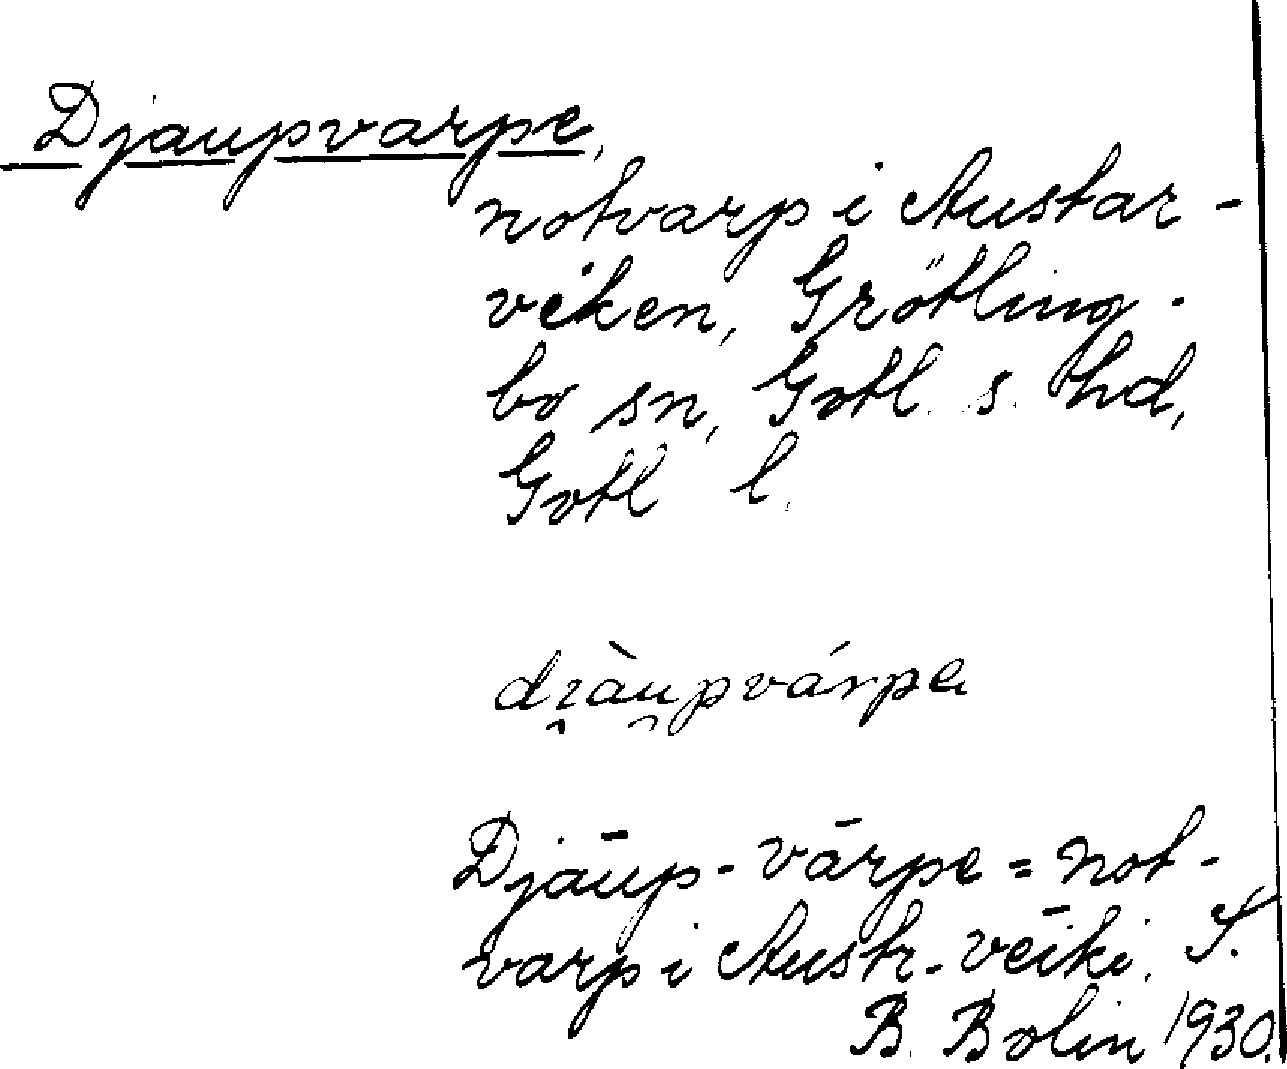 Djaupvarpe,
notvarp i Austar-
viken, Grötling-
bo sn, Gotl. s. hd,
Gotl l.
dɪ̯àu̯pvárpe
Djāūp-vārpe = not-
varp i Austr-vēiki. S.
B. Bolin 1930.